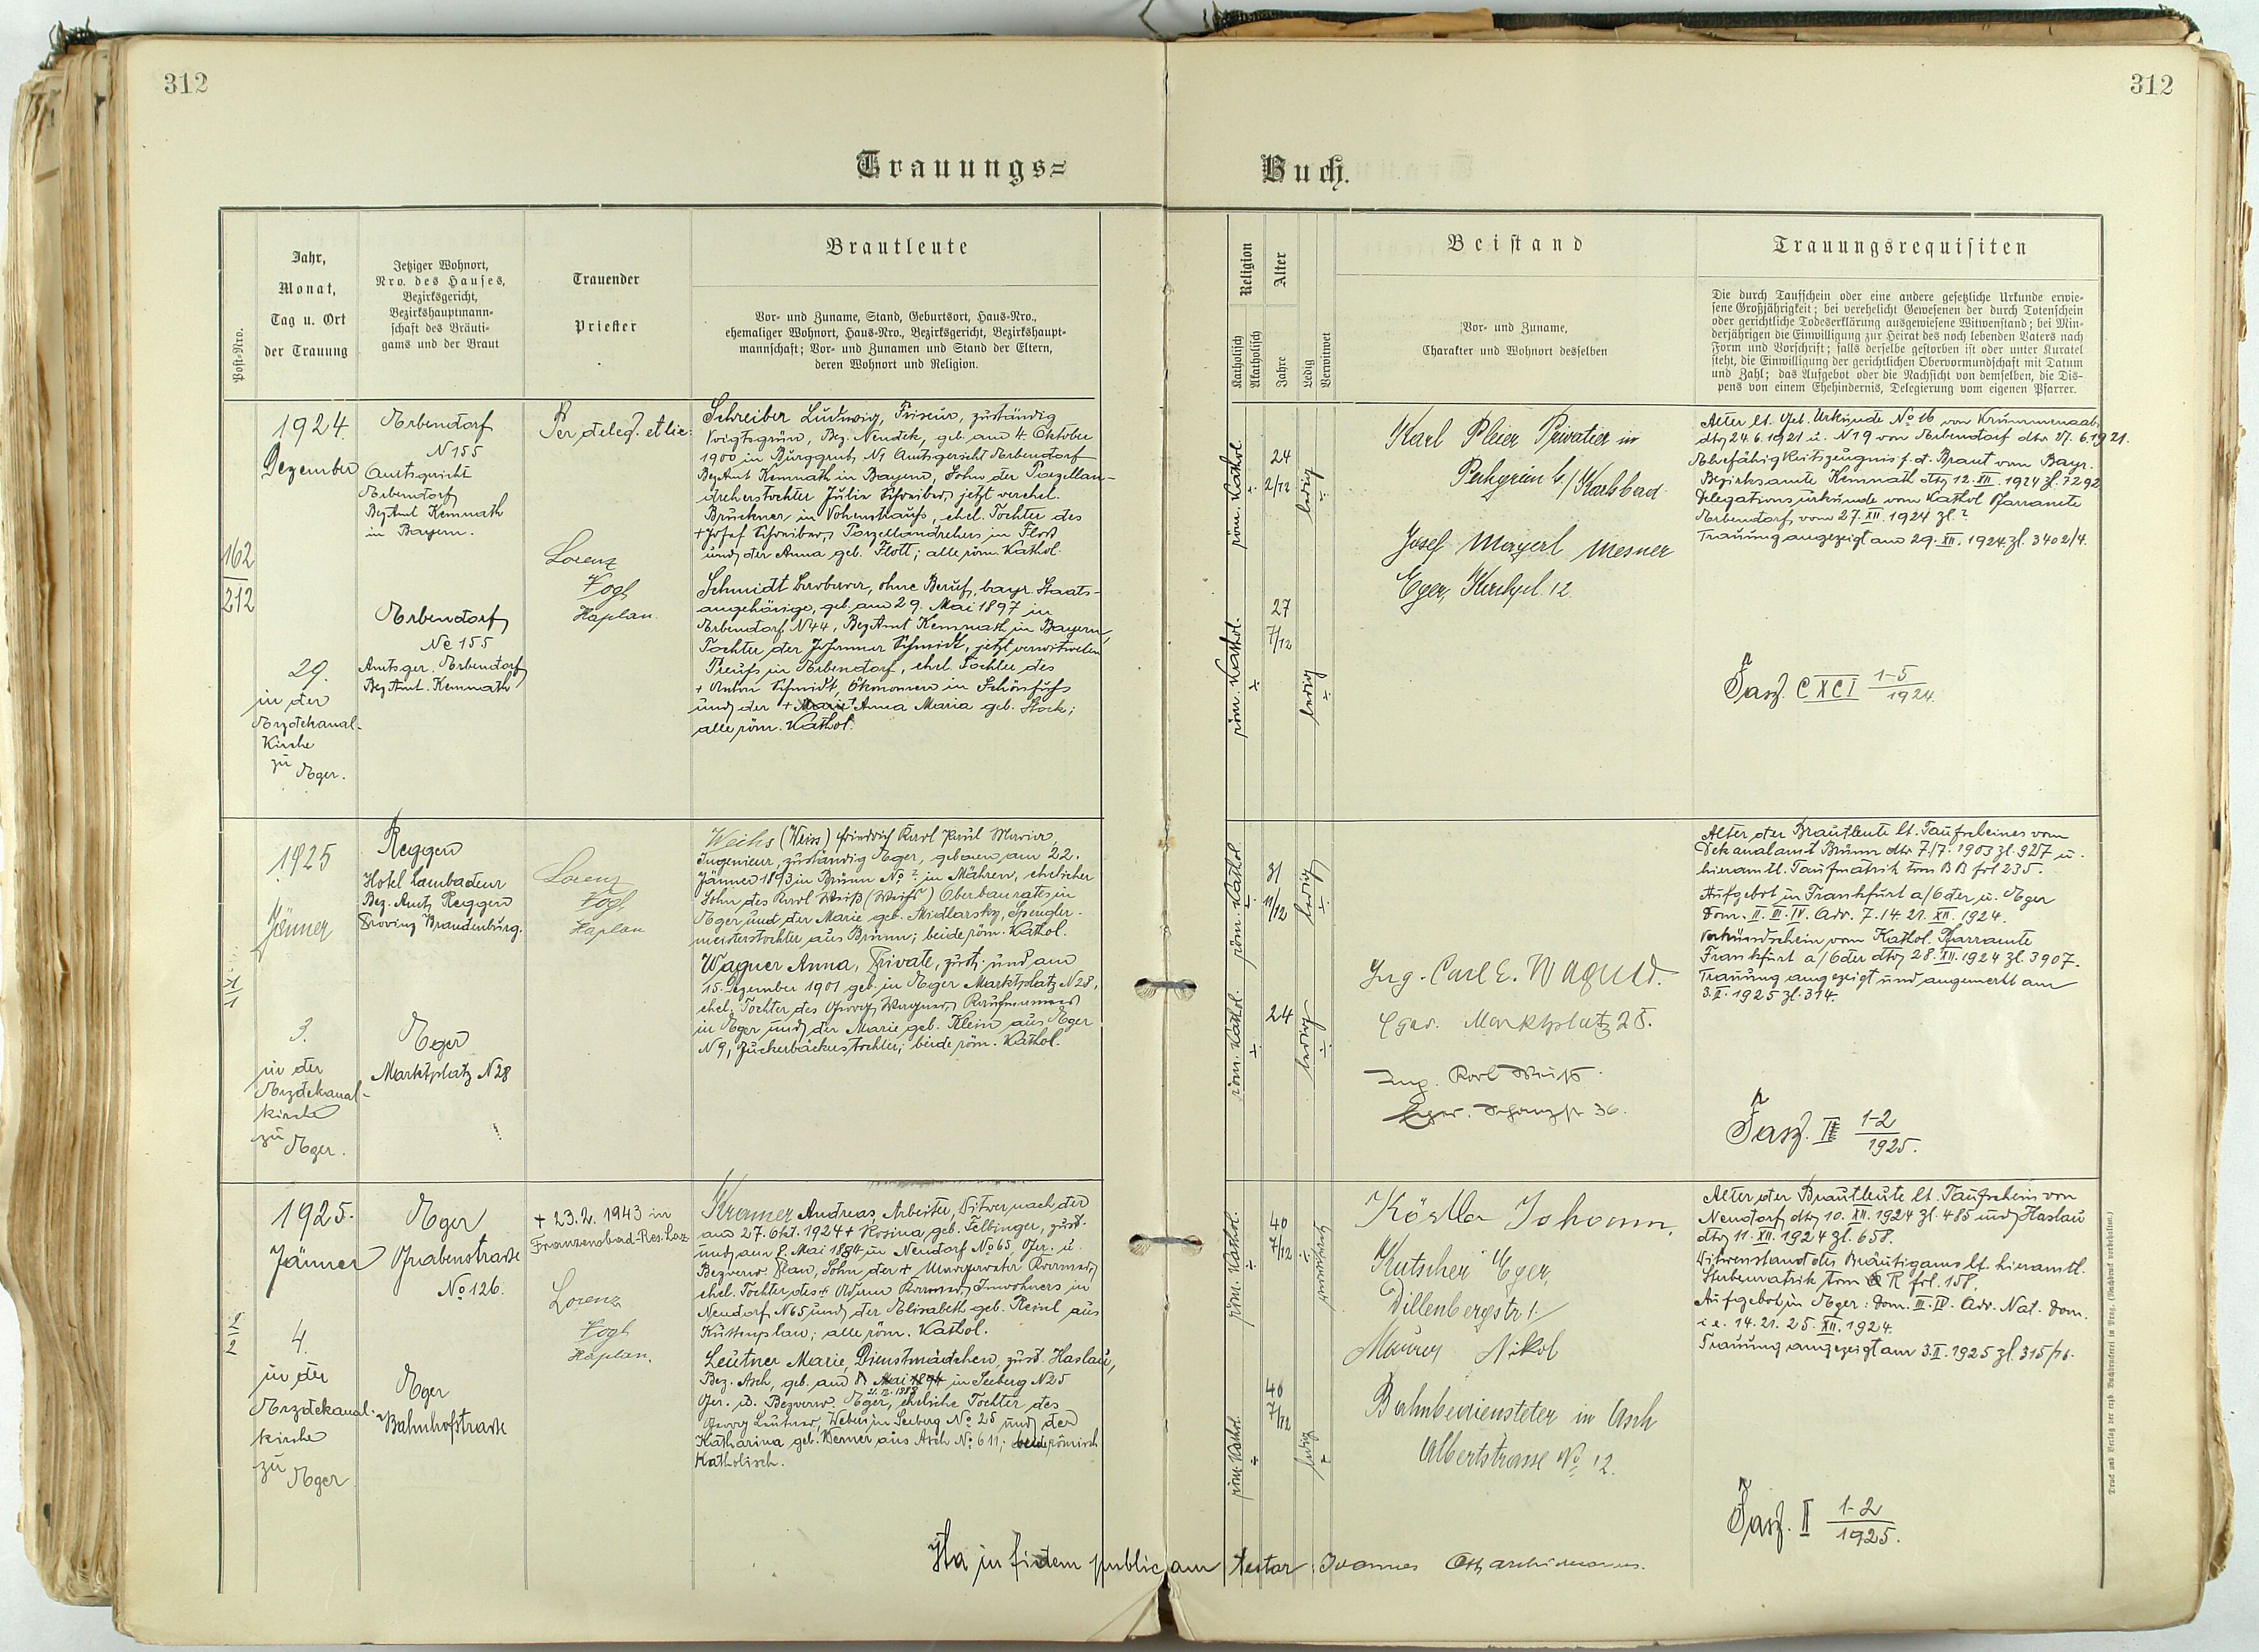 312
312
Trauungs=
Buch.
Post=Nro.
Jahr,
Monat,
Tag u. Ort
der Trauung
Jetziger Wohnort,
Nro. des Hauses,
Bezirksgericht,
Bezirkshauptmann-
schaft des Bräuti-
gams und der Braut
Trauender
Priester
Brautleute
Vor- und Zuname, Stand, Geburtsort, Haus=Nro.,
ehemaliger Wohnort, Haus=Nro., Bezirksgericht, Bezirkshaupt-
mannschaft; Vor- und Zunamen und Stand der Eltern,
deren Wohnort und Religion.
Religion
Katholisch
Akatholisch
Alter
Jahre
Ledig
Verwitwet
Beistand
Vor- und Zuname,
Charakter und Wohnort desselben
Trauungsrequisiten
Die durch Taufschein oder eine andere gesetzliche Urkunde erwie-
sene Großjährigkeit; bei verehelicht Gewesenen der durch Totenschein
oder gerichtliche Todeserklärung ausgewiesene Witwenstand; bei Min-
derjährigen die Einwilligung zur Heirat des noch lebenden Vaters nach
Form und Vorschrift; falls derselbe gestorben ist oder unter Kuratel
steht, die Einwilligung der gerichtlichen Obervormundschaft mit Datum
und Zahl; das Aufgebot oder die Nachsicht von demselben, die Dis-
pens von einem Ehehindernis, Delegierung vom eigenen Pfarrer.
162
212
1924.
Dezember
29.
in der
Erzdekanal-
Kirche
zu
Eger.
Erbendorf
N 155
Amtsgericht
Erbendorf
Bez Amt Kemnath
in Bayern.
Erbendorf
No 155
Amtsger. Erbendorf
Bez Amt. Kemnath
Per deleg. et lic.
Lorenz
Vogl
Kaplan.
Schreiber Ludwig, Friseur, zuständig
Voigtsgrün, Bez. Neudek, geb. am 4. Oktober
1900 in Burggrub, N1 Amtsgericht Erbendorf
Bez Amt Kemnath in Bayern, Sohn der Porzellan-
dreherstochter Julie Schreiber, jetzt verehel.
Bruckner in Vohenstrauß, ehel. Tochter des
+ Josef Schreiber, Porzellandrehers in Floß
und der Anna geb. Flott; alle röm. Kathol.
Schmidt Barbara, ohne Beruf, bayr. Staats-
angehörige, geb. am 29. Mai 1897 in
Erbendorf N44, Bez Amt Kemnath in Bayern,
Tochter der Johanna Schmidt, jetzt verwitweten
Preuß in Erbendorf, ehel. Tochter des
+ Anton Schmidt, Ökonomen in
und der + Anna Maria geb. Stock;
alle röm. Kathol.
röm. Kathol.
24
2/12
ledig
röm. Kathol.
27
7/12
ledig
Karl Pleier Privatier in
b/Karlsbad
Josef Mayerl Mesner
Eger, Kirchpl. 12
Alter lt. Geb. Urkunde No 16 von Krummennaab,
dto 24.6.1921 u. N19 von Erbendorf dto 27.6.1921.
Ehefähigkeitszeugnis f. d. Braut vom Bayr.
Bezirksamte Kemnath dto 12.XII.1924 Zl. 7292
Delegationsurkunde vom Kathol Pfarramte
Erbendorf vom 27.XII.1924 Zl. ?
Trauung angezeigt am 29.XII.1924 Zl. 3402/4.
Fasz. CXCI 1-5
1924.
1
1
1925
Jänner
3.
in der
Erzdekanal-
kirche
zu
Eger.
Reppen
Hotel Lambadeur
Bez. Amt Reppen
Provinz Brandenburg.
Eger
Marktplatz N28
Lorenz
Vogl
Kaplan
Weihs (Weiss) Friedrich Karl Paul Maria,
Ingenieur, zuständig Eger, geboren am 22.
Jänner 1893 in Brünn No ? in Mähren, ehelicher
Sohn des Karl Weiß (Weihs) Oberbaurates in
Eger und der Marie geb. Miedlarsky, Spengler-
meisterstochter aus Brünn; beide röm. Kathol.
Wagner Anna, Private, zust. und am
15. Dezember 1901 geb. in Eger Marktplatz N28,
ehel. Tochter des Georg Wagner, Kaufmannes
in Eger und der Marie geb. Klein aus Eger
N 9, Zuckerbäckerstochter; beide röm. Kathol.
röm. Kathol.
31
11/12
ledig
röm. Kathol.
24
ledig
Ing. Carl E. Wagner.
Eger. Marktplatz 28.
Ing. Karl Weiß.
Eger. Schanzstr 36.
Alter der Brautleute lt. Taufscheines vom
Dekanalamt Brünn dto 7/7. 1903 Zl. 927 u.
hieramtl. Taufmatrik Tom BB fol 235.
Aufgebot in Frankfurt a/Oder u. Eger
Dom. II. III. IV. Adv. 7. 14. 21. XII. 1924.
Verkündschein vom Kathol. Pfarramte
Frankfurt a/Oder dto 28.XII.1924 Zl. 3907.
Trauung angezeigt und angemerkt am
3.I.1925 Zl. 314.
Fasz. II 1-2
1925.
2
2
1925.
Jänner
4.
in der
Erzdekanal-
kirche
zu
Eger
Eger
Grabenstrasse
No 126.
Eger
Bahnhofstrasse
+ 23.2. 1943 in
Franzensbad-Res. Laz.
Lorenz
Vogl
Kaplan.
Kramer Andreas, Arbeiter, Witwer nach der
am 27. Okt. 1924 + Rosina, geb. Felbinger, zust.
und am 8. Mai 1884 in Neudorf No 65, Ger. u.
Bezverw. Plan, Sohn der + Margareta Kramer,
ehel. Tochter des + Adam Kramer, Inwohners in
Neudorf N65 und der Elisabeth geb. Reinl aus
Kuttenplan; alle röm. Kathol.
Leutner Marie, Dienstmädchen, zust. Haslau,
Bez. Asch, geb. am 8. Mai 1894 in Seeberg N25
21.12.1888
Ger. u. Bezverw. Eger, eheliche Tochter des
Georg Leutner, Weber in Seeberg No 25 und der
Katharina geb. Werner aus Asch No 611; beide römisch
Katholisch.
röm. Kathol.
40
7/12
verwitwet
röm. Kathol.
40
7/12
ledig
Köstler Johann,
Kutscher Eger,
Dillenbergstr 1.
Maurer Nikol
Bahnbediensteter in Asch
Albertstrasse No 12.
Alter der Brautleute lt. Taufschein von
Neudorf dto 10.XII.1924 Zl. 485 und Haslau
dto 11.XII.1924 Zl. 658.
Witwenstand des Bräutigams lt. hieramtl.
Sterbematrik Tom R fol. 158.
Aufgebot in Eger: Dom. III. IV. Adv. Nat. Dom.
i. e. 14. 21. 25. XII. 1924.
Trauung angezeigt am 3.I.1925 Zl. 315/26.
Fasz. II 1-2
1925.
Ita in fidem publicam testor: Joannes Oth archidecanus.
Druck und Verlag der erzb. Buchdruckerei in Prag. (Nachdruck vorbehalten.)